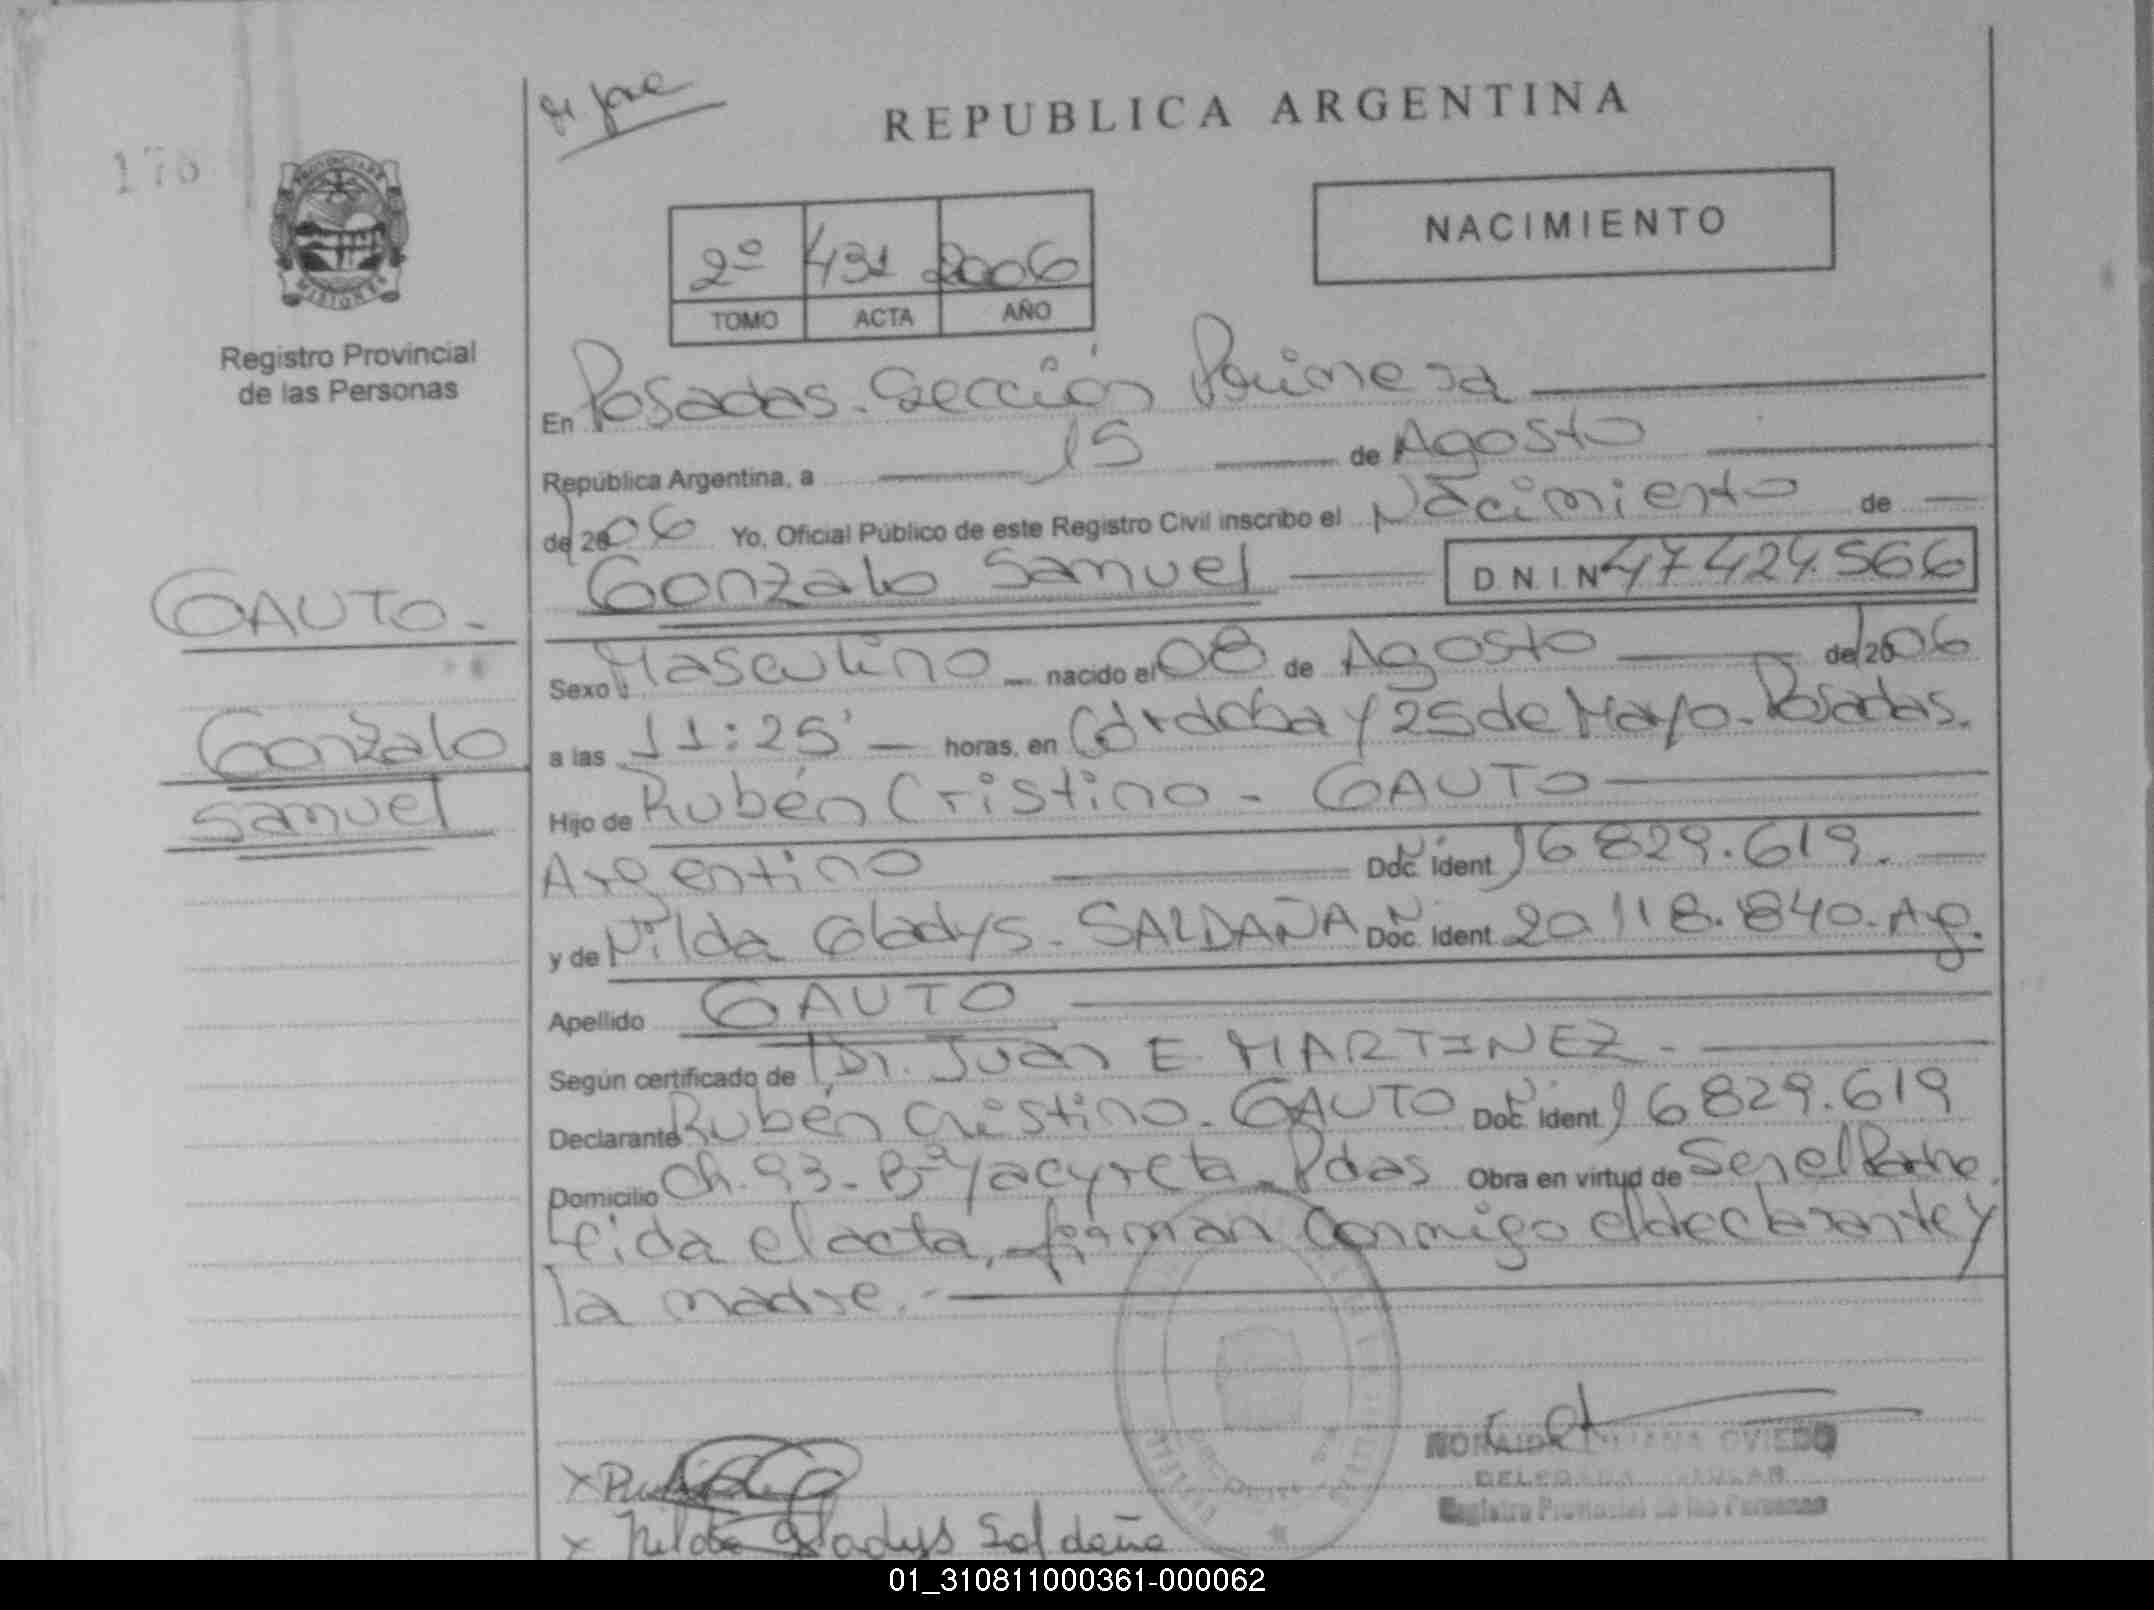 REPUBLICA ARGENTINA
NACIMIENTO
PROVINCIA DE
MISIONES
Registro Provincial
de las Personas
2º 431 2006
TOMO ACTA AÑO
En Posadas. Sección Primera
República Argentina, a 15 de Agosto
de 2006 Yo, Oficial Público de este Registro Civil inscribo el Nacimiento de
Gonzalo Samuel D.N.I.Nº 47424.566
GAUTO.
Gonzalo
Samuel
Sexo: Masculino nacido el 08 de Agosto de 2006
a las 11:25' horas, en Córdoba y 25 de Mayo. Posadas.
Hijo de Rubén Cristino - GAUTO
Argentino Doc. Ident. 16829.619.
y de Nilda Gladys. SALDAÑA Doc. Ident. 20118.840. Ag.
Apellido GAUTO
Según certificado de Dr. Juan E. MARTINEZ.
Declarante Rubén Cristino. GAUTO Doc. Ident. 16829.619
Domicilio Ch. 93. Bº Yacyreta. Pdas Obra en virtud de Ser el Padre.
Leida el acta, firman conmigo el declarante y
la madre.
OVIEDO
Registro Provincial de las Personas
x Nilda Gladys Saldaña
01_310811000361-000062